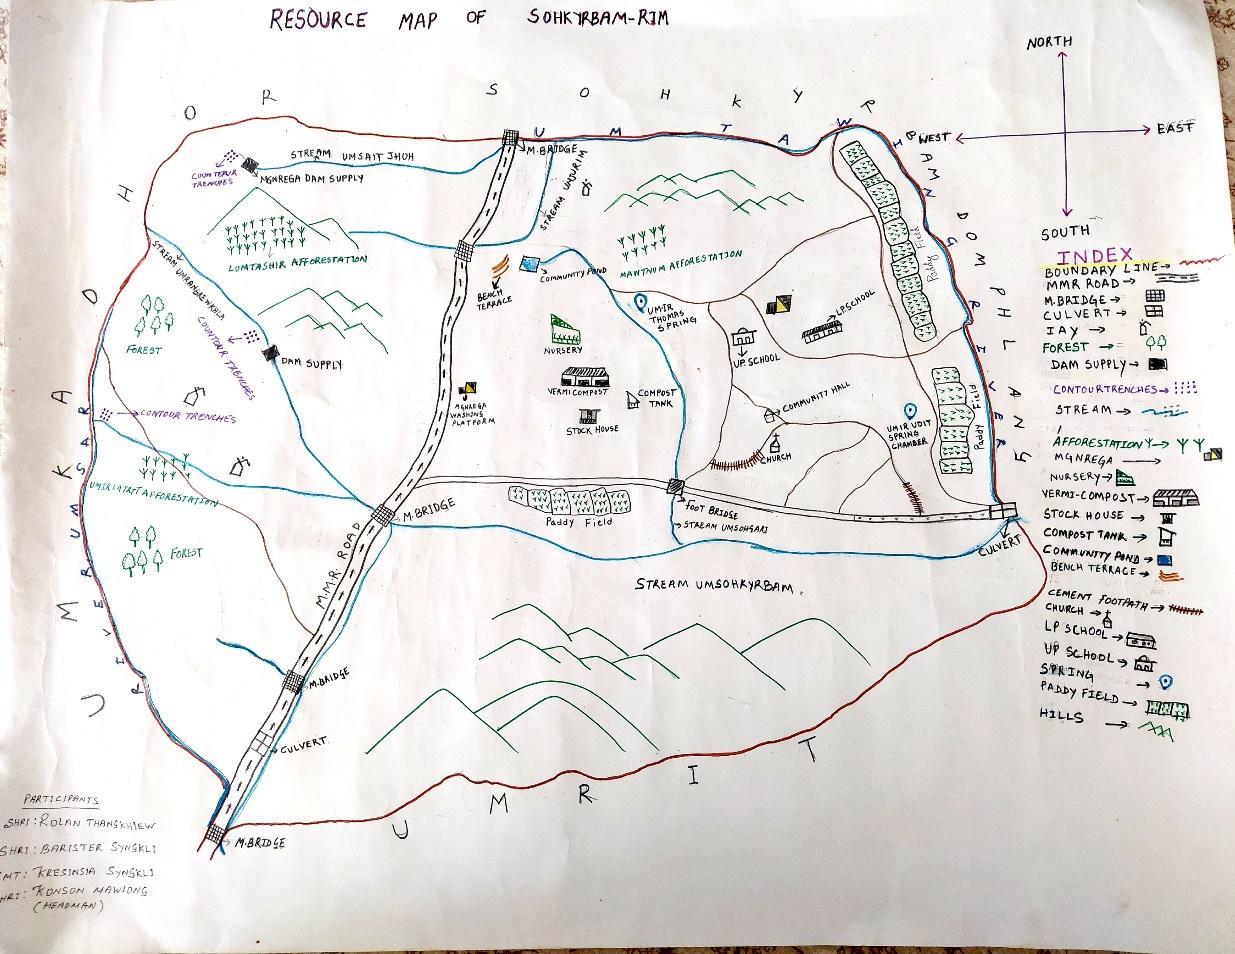 RESOURCE MAP OF SOHKYRBAM-RIM
NORTH
WEST
EAST
SOUTH
OR SOHKYR
UMTAW
STREAM UMSAIT JHOH
M.BRIDGE
MGNREGA DAM SUPPLY
STREAM UMJURIM
LUMTASHIR AFFORESTATION
MAWTHUM AFFORESTATION
COMMUNITY POND
BENCH
TERRACE
UMIR
THOMAS
SPRING
LP SCHOOL
UP. SCHOOL
Paddy Field
FOREST
COUNTOUR TRENCHES
DAM SUPPLY
NURSERY
VERMICOMPOST
COMPOST
TANK
STOCK HOUSE
MGNREGA
WASHING
PLATFORM
CONTOUR TRENCHES
COMMUNITY HALL
CHURCH
UMIR UDIT
SPRING
CHAMBER
Paddy Field
FOREST
M.BRIDGE
M.M.R. ROAD
Paddy Field
FOOT BRIDGE
STREAM UMSOHGARI
CULVERT
STREAM UMSOHKYRBAM
M.BRIDGE
CULVERT
M.BRIDGE
UMRIT
INDEX
BOUNDARY LINE
MMR ROAD
M.BRIDGE
CULVERT
JAY
FOREST
DAM SUPPLY
CONTOUR TRENCHES
STREAM
AFFORESTATION
MGNREGA
NURSERY
VERMI-COMPOST
STOCK HOUSE
COMPOST TANK
COMMUNITY POND
BENCH TERRACE
CEMENT FOOTPATH
CHURCH
LP SCHOOL
UP SCHOOL
SPRING
PADDY FIELD
HILLS
PARTICIPANTS
SHRI: ROLAN THANGKHIEW
SHRI: BARISTER SYNGKLI
MT: KRESINSIA SYNGKLI
HRI: KONSON MAWLONG
(HEADMAN)